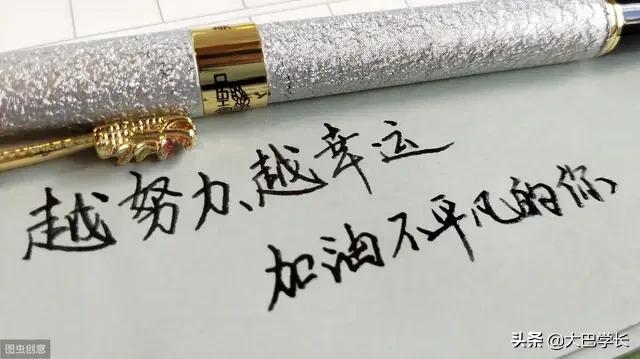 越努力、越幸运
加油不平凡的你、
图虫创意
头条 @大巴学长